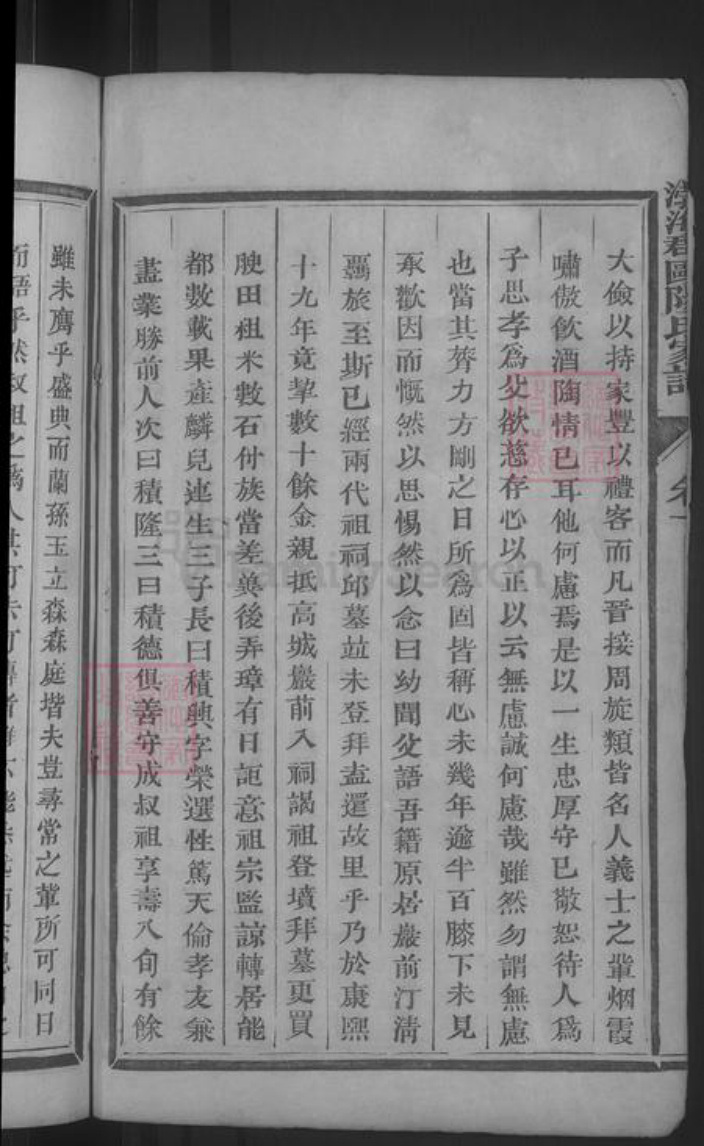 大儉以持家豐以禮客而凡晉接周旋類皆名人義士之輩烟霞
嘯傲飲酒陶情已耳他何慮焉是以一生忠厚守己敬恕待人為
子思孝為父欲慈存心以正以云無慮誠何慮哉雖然勿謂無慮
也當其膂力方剛之日所為固皆稱心未幾年逾半百膝下未見
承歡因而慨然以思惕然以念曰幼聞父語吾籍原居巖前汀清
羈旅至斯已經兩代祖祠邱墓並未登拜盍還故里乎乃於康熙
十九年竟挈數十餘金親抵高城巖前入祠謁祖登墳拜墓更買
腴田租米數石付族當差奠後弄璋有日詎意祖宗監諒轉居能
都數載果產麟兒連生三子長曰積興字榮選性篤天倫孝友兼
盡業勝前人次曰積隆三曰積德俱善守成叔祖享壽八旬有餘
雖未膺乎盛典而蘭孫玉立森森庭堦夫豈尋常之輩所可同日
而語乎然叔祖之為人其可